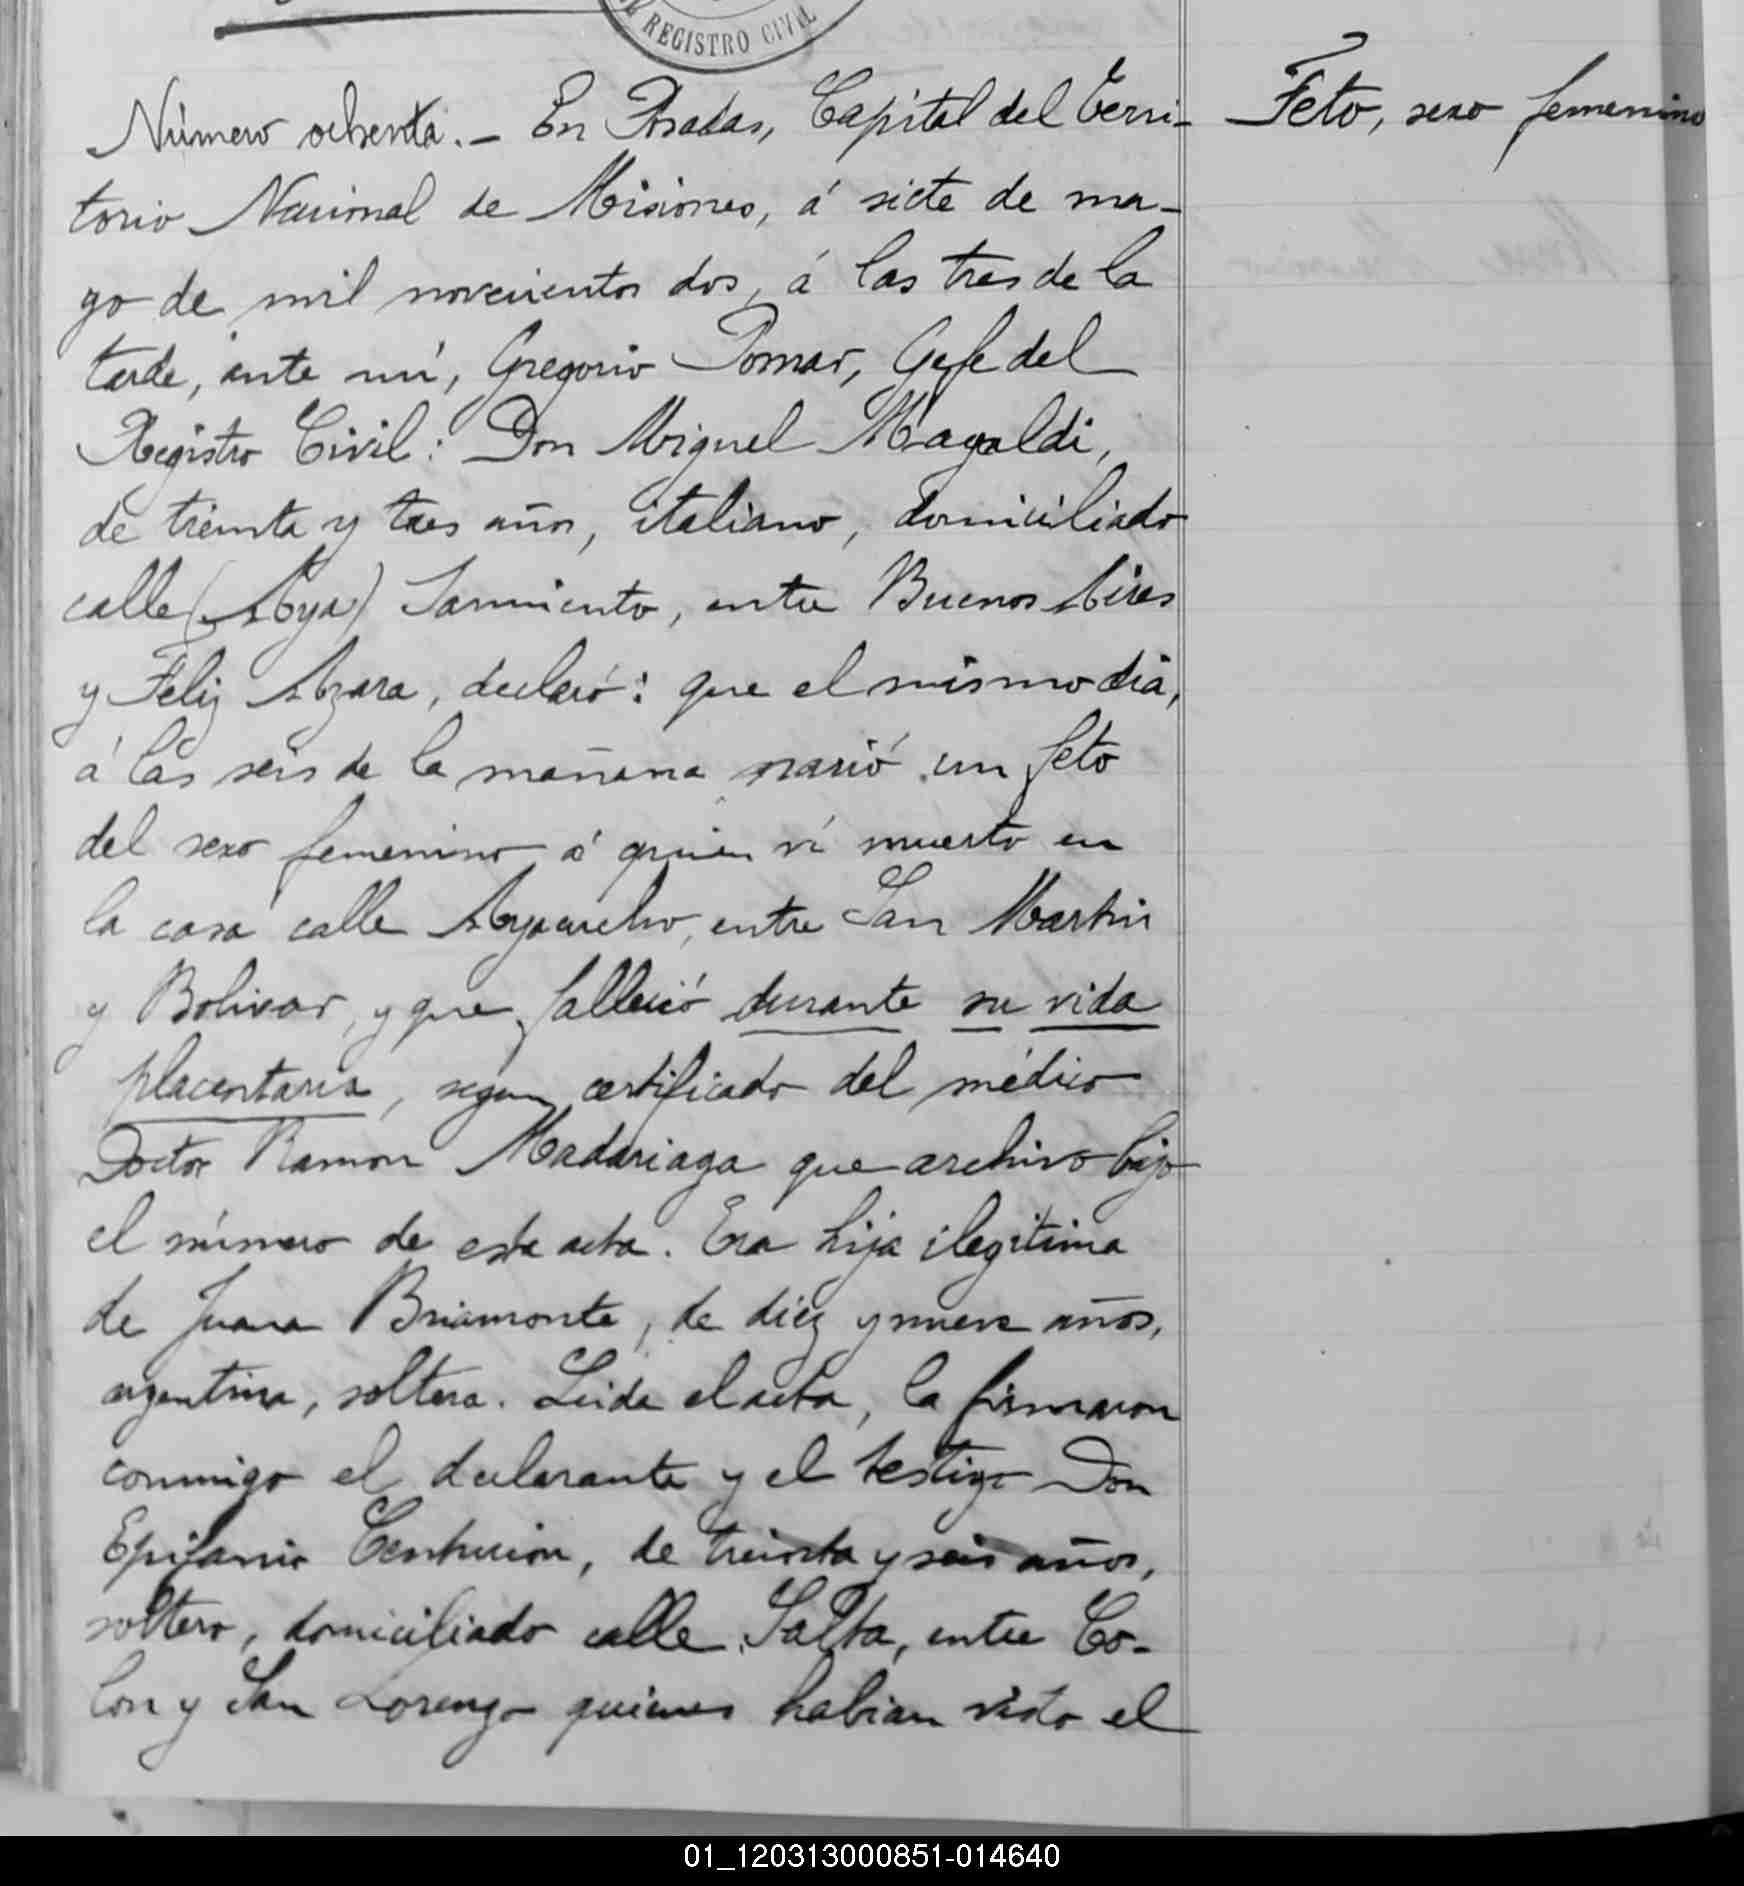 REGISTRO CIVIL
Número ochenta.- En Posadas, Capital del Terri-
torio Nacional de Misiones, á siete de ma-
yo de mil novecientos dos, á las tres de la
tarde, ante mí, Gregorio Pomar, Gefe del
Registro Civil: Don Miguel Magaldi,
de treinta y tres años, italiano, domiciliado
calle (Aya) Sarmiento, entre Buenos Aires
y Feliz Azara, declaró: que el mismo dia,
á las seis de la mañana nació un feto
del sexo femenino á quien ví muerto en
la casa calle Ayacucho, entre San Martin
y Bolivar, y que falleció durante su vida
placentaria, segun certificado del médico
Doctor Ramon Madariaga que archivo bajo
el número de esta acta. Era hija ilegitima
de Juana Briamonte, de diez y nueve años,
argentina, soltera. Leida el acta, la firmaron
conmigo el declarante y el testigo Don
Epifanio Centurion, de treinta y seis años,
soltero, domiciliado calle Salta, entre Co-
lon y San Lorenzo quienes habian visto el
Feto, sexo femenino
01_120313000851-014640